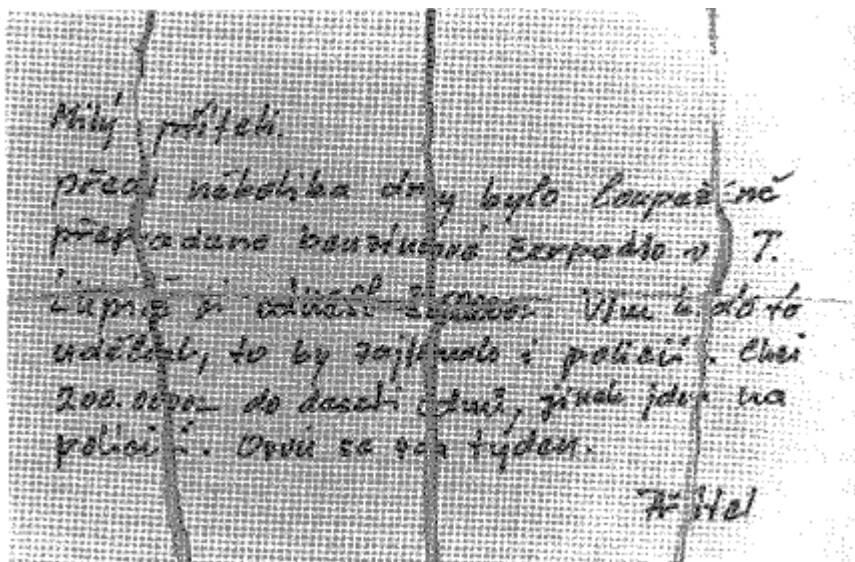 Milý příteli.
před několika dny bylo loupežně
přepadano benzinové čerpadlo v T.
Lupič si odnášel Vím kdo to
udělal, to by zajímalo i policii. Chci
200.000 do deseti dnů, jinak jdu na
policii. Ozvu se za týden.
Přítel